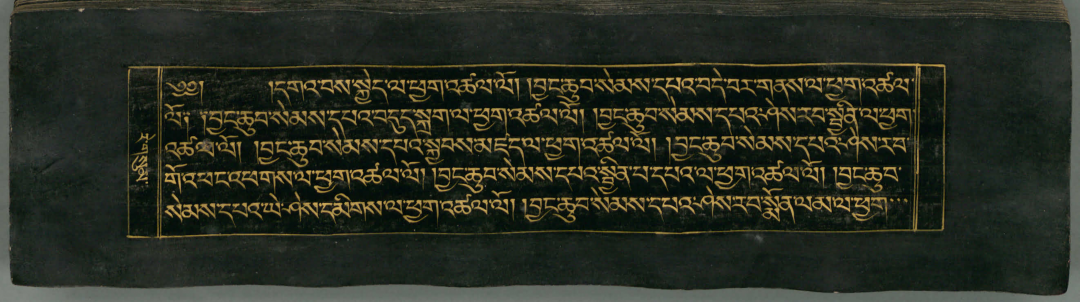 ༄༅། །དགའ་བས་སྐྱེད་ལ་ཕྱག་འཚལ་ལོ། །བྱང་ཆུབ་སེམས་དཔའ་བདེ་བར་གནས་ལ་ཕྱག་འཚལ་
ལོ། །བྱང་ཆུབ་སེམས་དཔའ་བདུད་སྒྲ་ག་ལ་ཕྱག་འཚལ་ལོ། །བྱང་ཆུབ་སེམས་དཔའ་ཤེས་རབ་སྦྱིན་ལ་ཕྱག་
འཚལ་ལོ། །བྱང་ཆུབ་སེམས་དཔའ་སྐྱབས་མཛད་ལ་ཕྱག་འཚལ་ལོ། །བྱང་ཆུབ་སེམས་དཔའ་ཤེས་རབ་
གོ་འཕང་འཕགས་ལ་ཕྱག་འཚལ་ལོ། །བྱང་ཆུབ་སེམས་དཔའ་སྦྱིན་པ་དཔའ་ལ་ཕྱག་འཚལ་ལོ། །བྱང་ཆུབ་
སེམས་དཔའ་ཡེ་ཤེས་དམིགས་ལ་ཕྱག་འཚལ་ལོ། །བྱང་ཆུབ་སེམས་དཔའ་ཤེས་རབ་སྒྲོན་མ་ལ་ཕྱག་